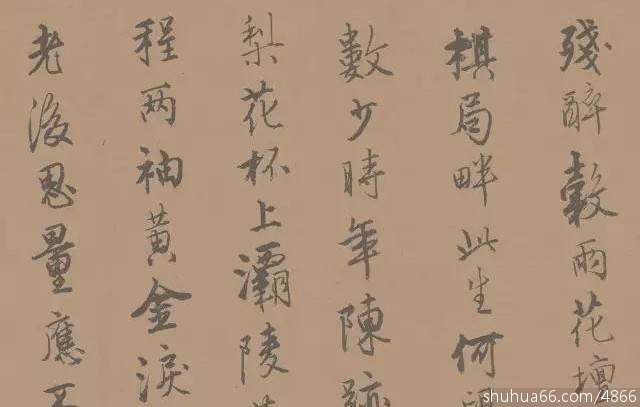 殘醉穀雨花壇
棋局畔此生何
數少時年陳跡
梨花杯上灞陵
程两袖黃金淚
老後思量應不
shuhua66.com/4866